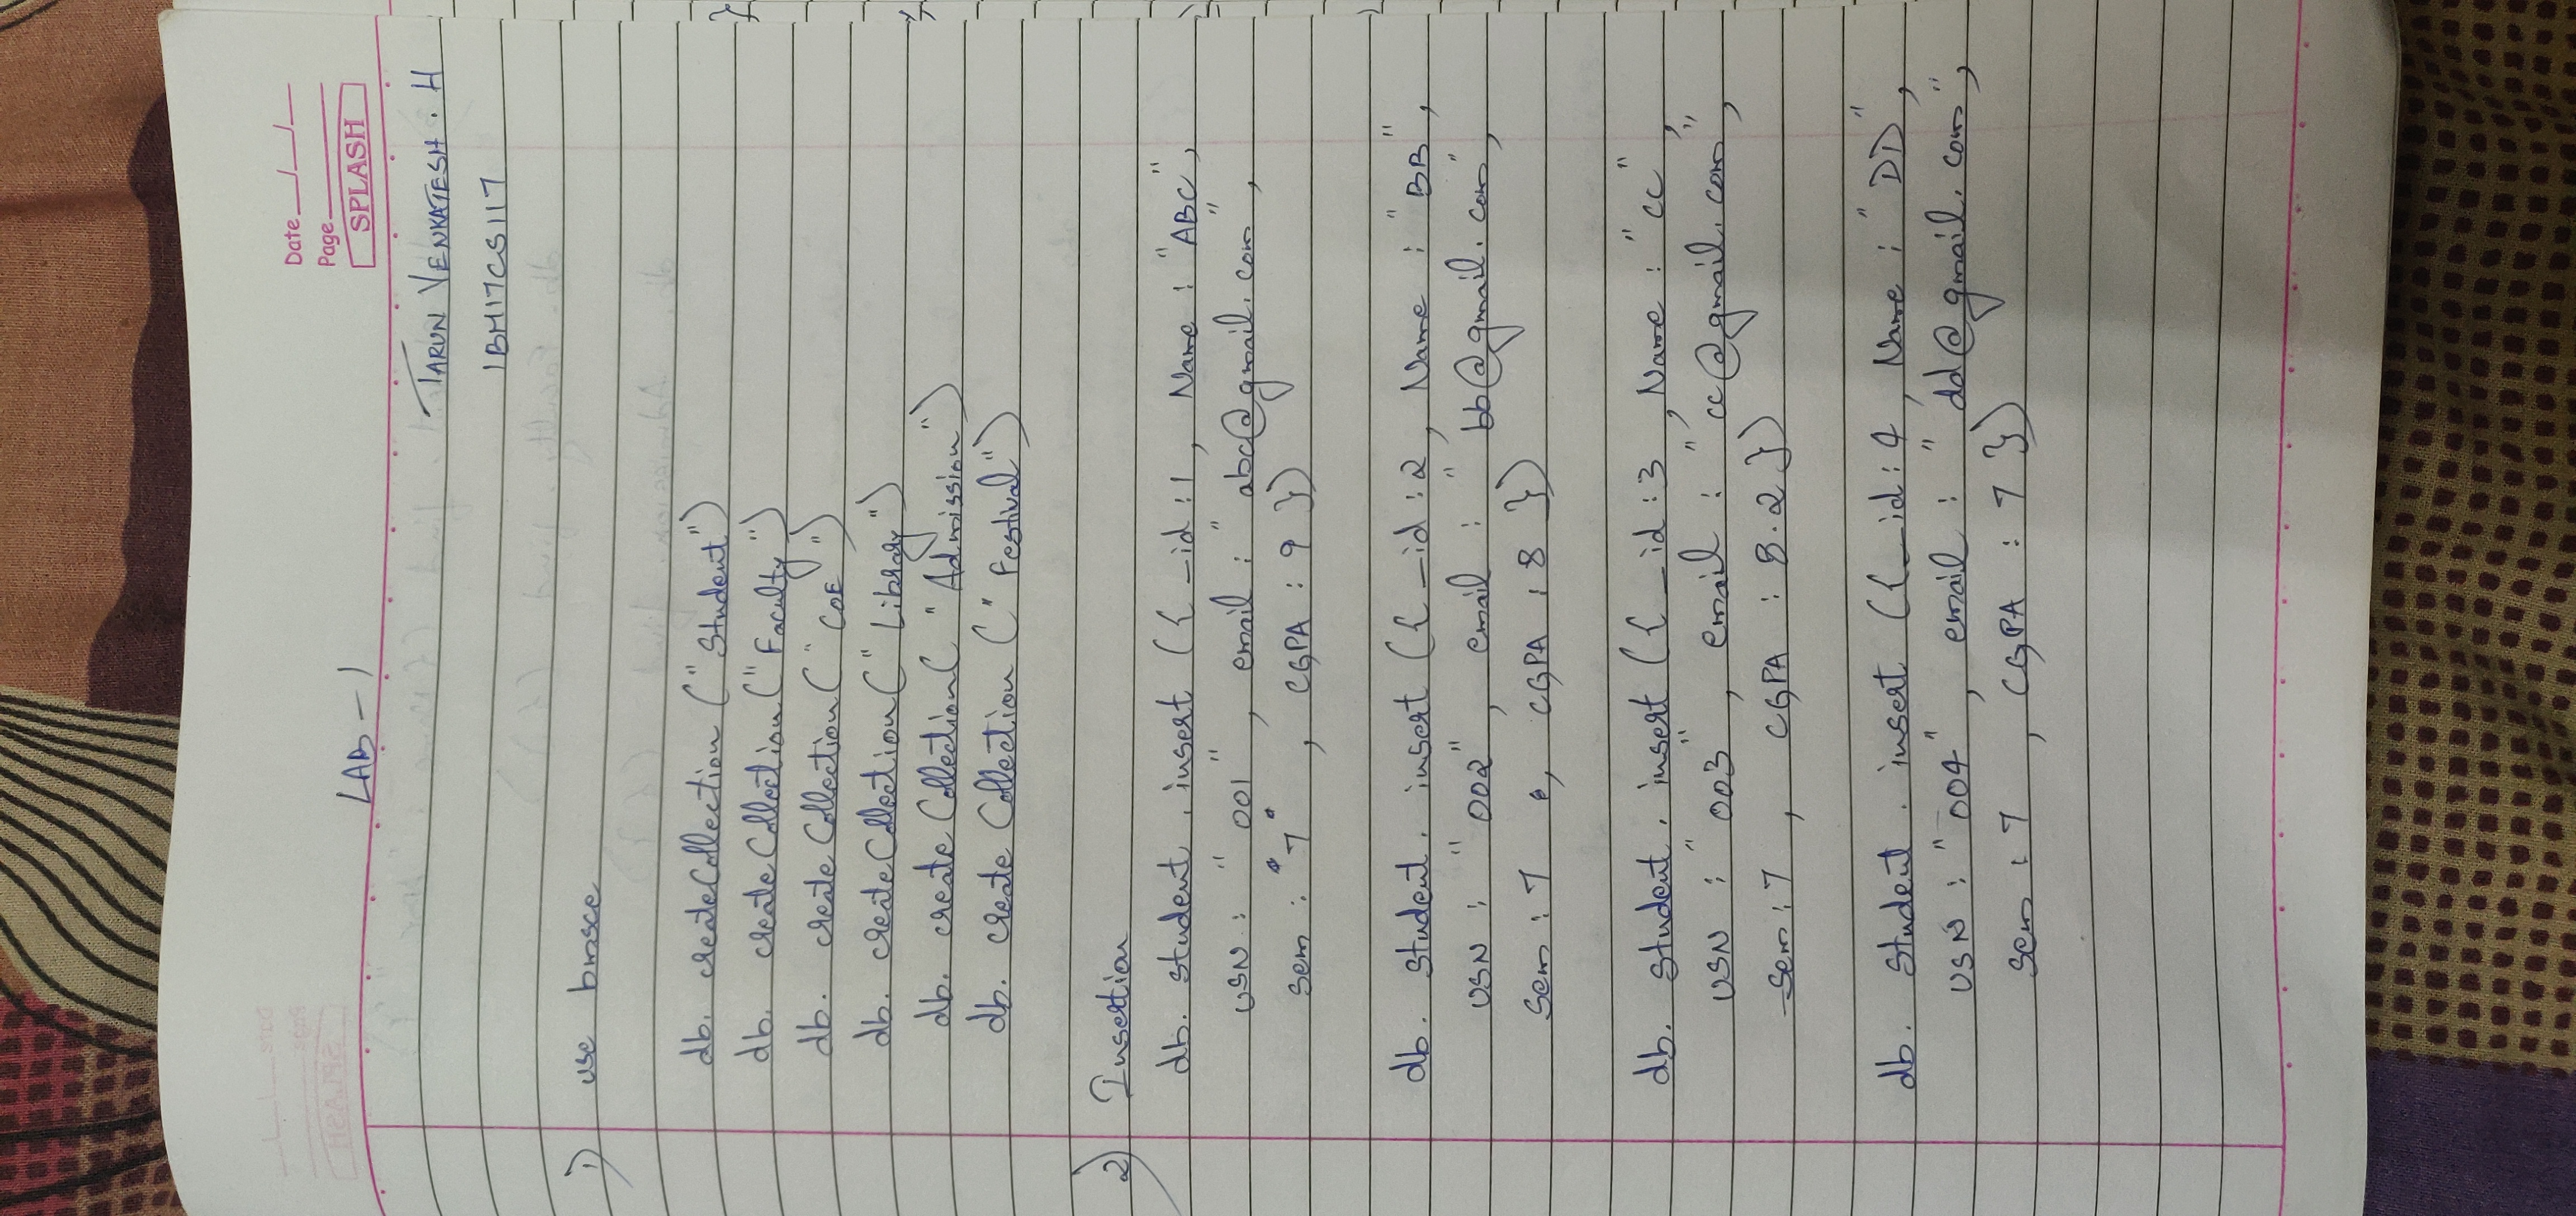 Date
Page
SPLASH
LAB - 1
TARUN VENKATESH . H
1BM17CS117
1) use bmsce
db. createCollection ("Student")
db. createCollection ("Faculty")
db. createCollection ("COE")
db. createCollection ("Library")
db. createCollection ("Admission")
db. createCollection ("Festival")
2) Insertion
db. student . insert ({ _id : 1, Name : "ABC",
USN : "001", email : "abc@gmail.com",
sem : "7", CGPA : 9 })
db. student . insert ({ _id : 2, Name : "BB",
USN : "002", email : "bb@gmail.com",
Sem : 7 , CGPA : 8 })
db. student . insert ({ _id : 3 , Name : "CC",
USN : "003", email : "cc@gmail.com",
Sem : 7 , CGPA : 8.2 })
db. student . insert ({ _id : 4 , Name : "DD",
USN : "004", email : "dd@gmail.com",
Sem : 7 , CGPA : 7 })